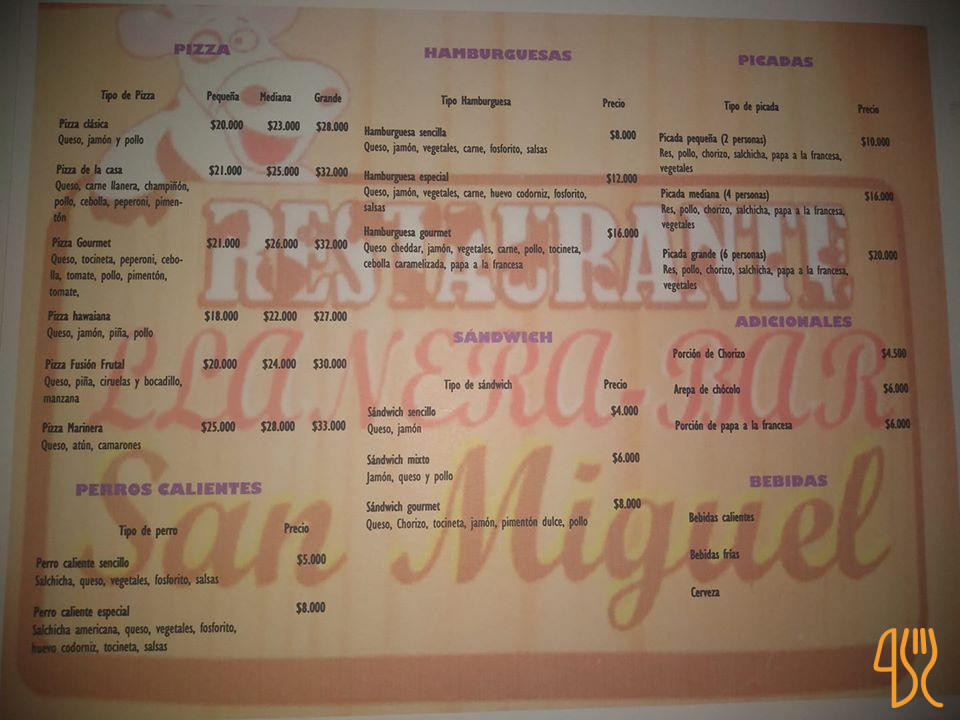 PIZZA
Tipo de Pizza Pequeña Mediana Grande
Pizza clásica $20.000 $23.000 $28.000
Queso, jamón y pollo
Pizza de la casa $21.000 $25.000 $32.000
Queso, carne llanera, champiñón,
pollo, cebolla, peperoni, pimen-
tón
Pizza Gourmet $21.000 $26.000 $32.000
Queso, tocineta, peperoni, cebo-
lla, tomate, pollo, pimentón,
tomate,
Pizza hawaiana $18.000 $22.000 $27.000
Queso, jamón, piña, pollo
Pizza Fusión Frutal $20.000 $24.000 $30.000
Queso, piña, ciruelas y bocadillo,
manzana
Pizza Marinera $25.000 $28.000 $33.000
Queso, atún, camarones
PERROS CALIENTES
Tipo de perro Precio
Perro caliente sencillo $5.000
Salchicha, queso, vegetales, fosforito, salsas
Perro caliente especial $8.000
Salchicha americana, queso, vegetales, fosforito,
huevo codorniz, tocineta, salsas
HAMBURGUESAS
Tipo Hamburguesa Precio
Hamburguesa sencilla $8.000
Queso, jamón, vegetales, carne, fosforito, salsas
Hamburguesa especial $12.000
Queso, jamón, vegetales, carne, huevo codorniz, fosforito,
salsas
Hamburguesa gourmet $16.000
Queso cheddar, jamón, vegetales, carne, pollo, tocineta,
cebolla caramelizada, papa a la francesa
SÁNDWICH
Tipo de sándwich Precio
Sándwich sencillo $4.000
Queso, jamón
Sándwich mixto $6.000
Jamón, queso y pollo
Sándwich gourmet $8.000
Queso, Chorizo, tocineta, jamón, pimentón dulce, pollo
PICADAS
Tipo de picada Precio
Picada pequeña (2 personas) $10.000
Res, pollo, chorizo, salchicha, papa a la francesa,
vegetales
Picada mediana (4 personas) $16.000
Res, pollo, chorizo, salchicha, papa a la francesa,
vegetales
Picada grande (6 personas) $20.000
Res, pollo, chorizo, salchicha, papa a la francesa,
vegetales
ADICIONALES
Porción de Chorizo $4.500
Arepa de chócolo $6.000
Porción de papa a la francesa $6.000
BEBIDAS
Bebidas calientes
Bebidas frías
Cerveza
RESTAURANTE
LLANERA-BAR
San Miguel